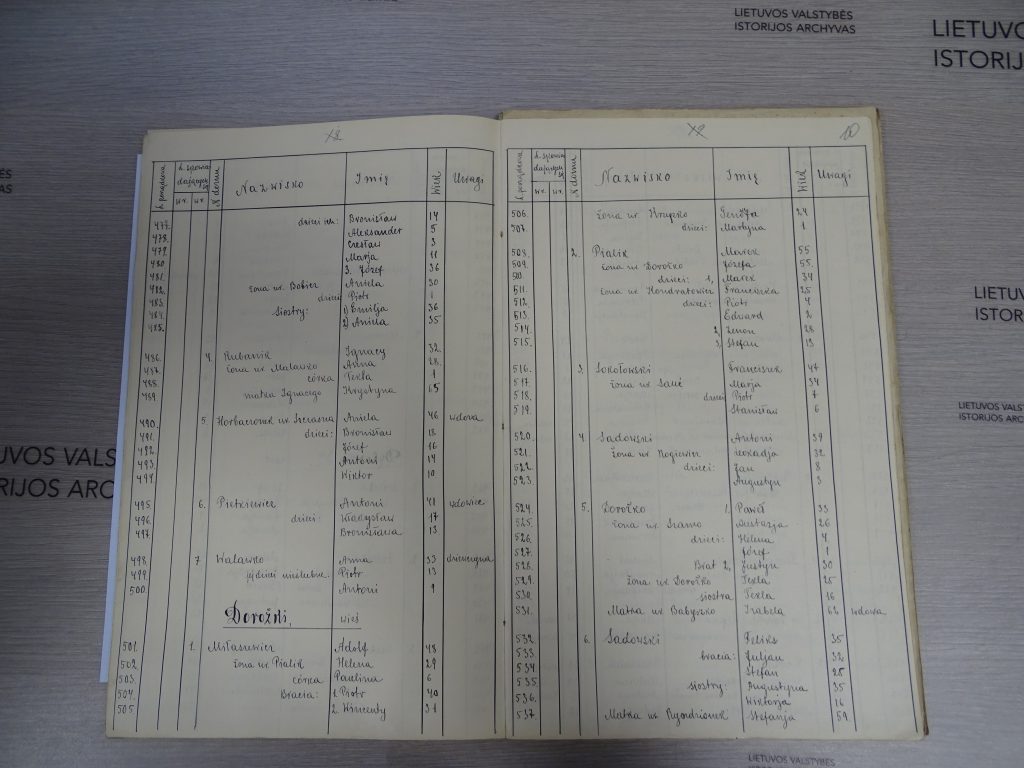 LIETUVOS VALSTYBĖS
ISTORIJOS ARCHYVAS
LIETUVO
ISTORIJ
10
L. porządkowa
L. spowia dających się
wr.
wr.
N domu
Nazwisko
Imię
Wiek
Uwagi
477. dzieci ich: Bronisław 14
478. Aleksander 5
479. Czesław 3
480. Marja 11
481. 3. Józef 36
482. żona ur. Bobier Aniela 30
483. dzieci Piotr 1
484. siostry: 1) Emilja 36
485. 2) Aniela 35
486. 4. Rubanik Ignacy 32
487. żona ur. Maławko Anna 28
488. córka Tekla 1
489 matka Ignacego Krystyna 65
490. 5. Horbaczonek ur. Aniela 46 wdowa
491. dzieci: Bronisław 18
492. Józef 16
493. Antoni 14
494. Wiktor 10
495. 6. Pietkiewicz Antoni 41 wdowiec
496. dzieci: Władysław 17
497. Bronisława 13
498. 7 Walawko Anna 33 dziewczyna
499. jej dzieci nieślubne Piotr 13
500. Antoni 9
Dorożki, wieś
501. 1. Miłaszewicz Adolf 48
502. żona ur. Ptalik Helena 29
503. córka Paulina 6
504. Bracia: 1. Piotr 40
505 2. Wincenty 31
L. porządkowa
L. spowia dających się
wr.
wr.
N domu
Nazwisko
Imię
Wiek
Uwagi
506. żona ur. Hrapko Genóefa 24
507. dzieci: Martyna 1
508. 2. Ptalik Marek 55
509. żona ur. Dorożko Józefa 55
510 dzieci: 1, Marek 34
511. żona ur. Kondratowicz Franciszka 25
512. dzieci: Piotr 4
513. Edward 2
514. 2, Zenon 28
515. 3. Stefan 13
516. 3. Sokołowski Franciszek 47
517. żona ur. Marja 34
518. dzieci Piotr 7
519. Stanisław 6
520. 4. Sadowski Antoni 39
521. żona ur. Rogiewicz Leokadja 32
522. dzieci: Jan 8
523 Augustyn 3
524. 5. Dorożko 1. Paweł 33
525. żona ur. Szamo Nastazja 26
526. dzieci: Helena 4
527. Józef 1
528. Brat 2, Justyn 30
529. żona ur. Dorożko Tekla 25
530. siostra Tekla 16
531. Matka ur. Babyszko Izabela 62 wdowa
532. 6. Sadowski Feliks 35
533. bracia: Juljan 32
534. Stefan 25
535. siostry: Augustyna 35
536. Wiktorja 16
537. Matka ur. Stefanja 59.
LIETUV
ISTOR
LIETUVOS VALSTYB
ISTORIJOS ARCH
UVOS VALST
RIJOS ARC
LIETUVOS VALSTYBĖS